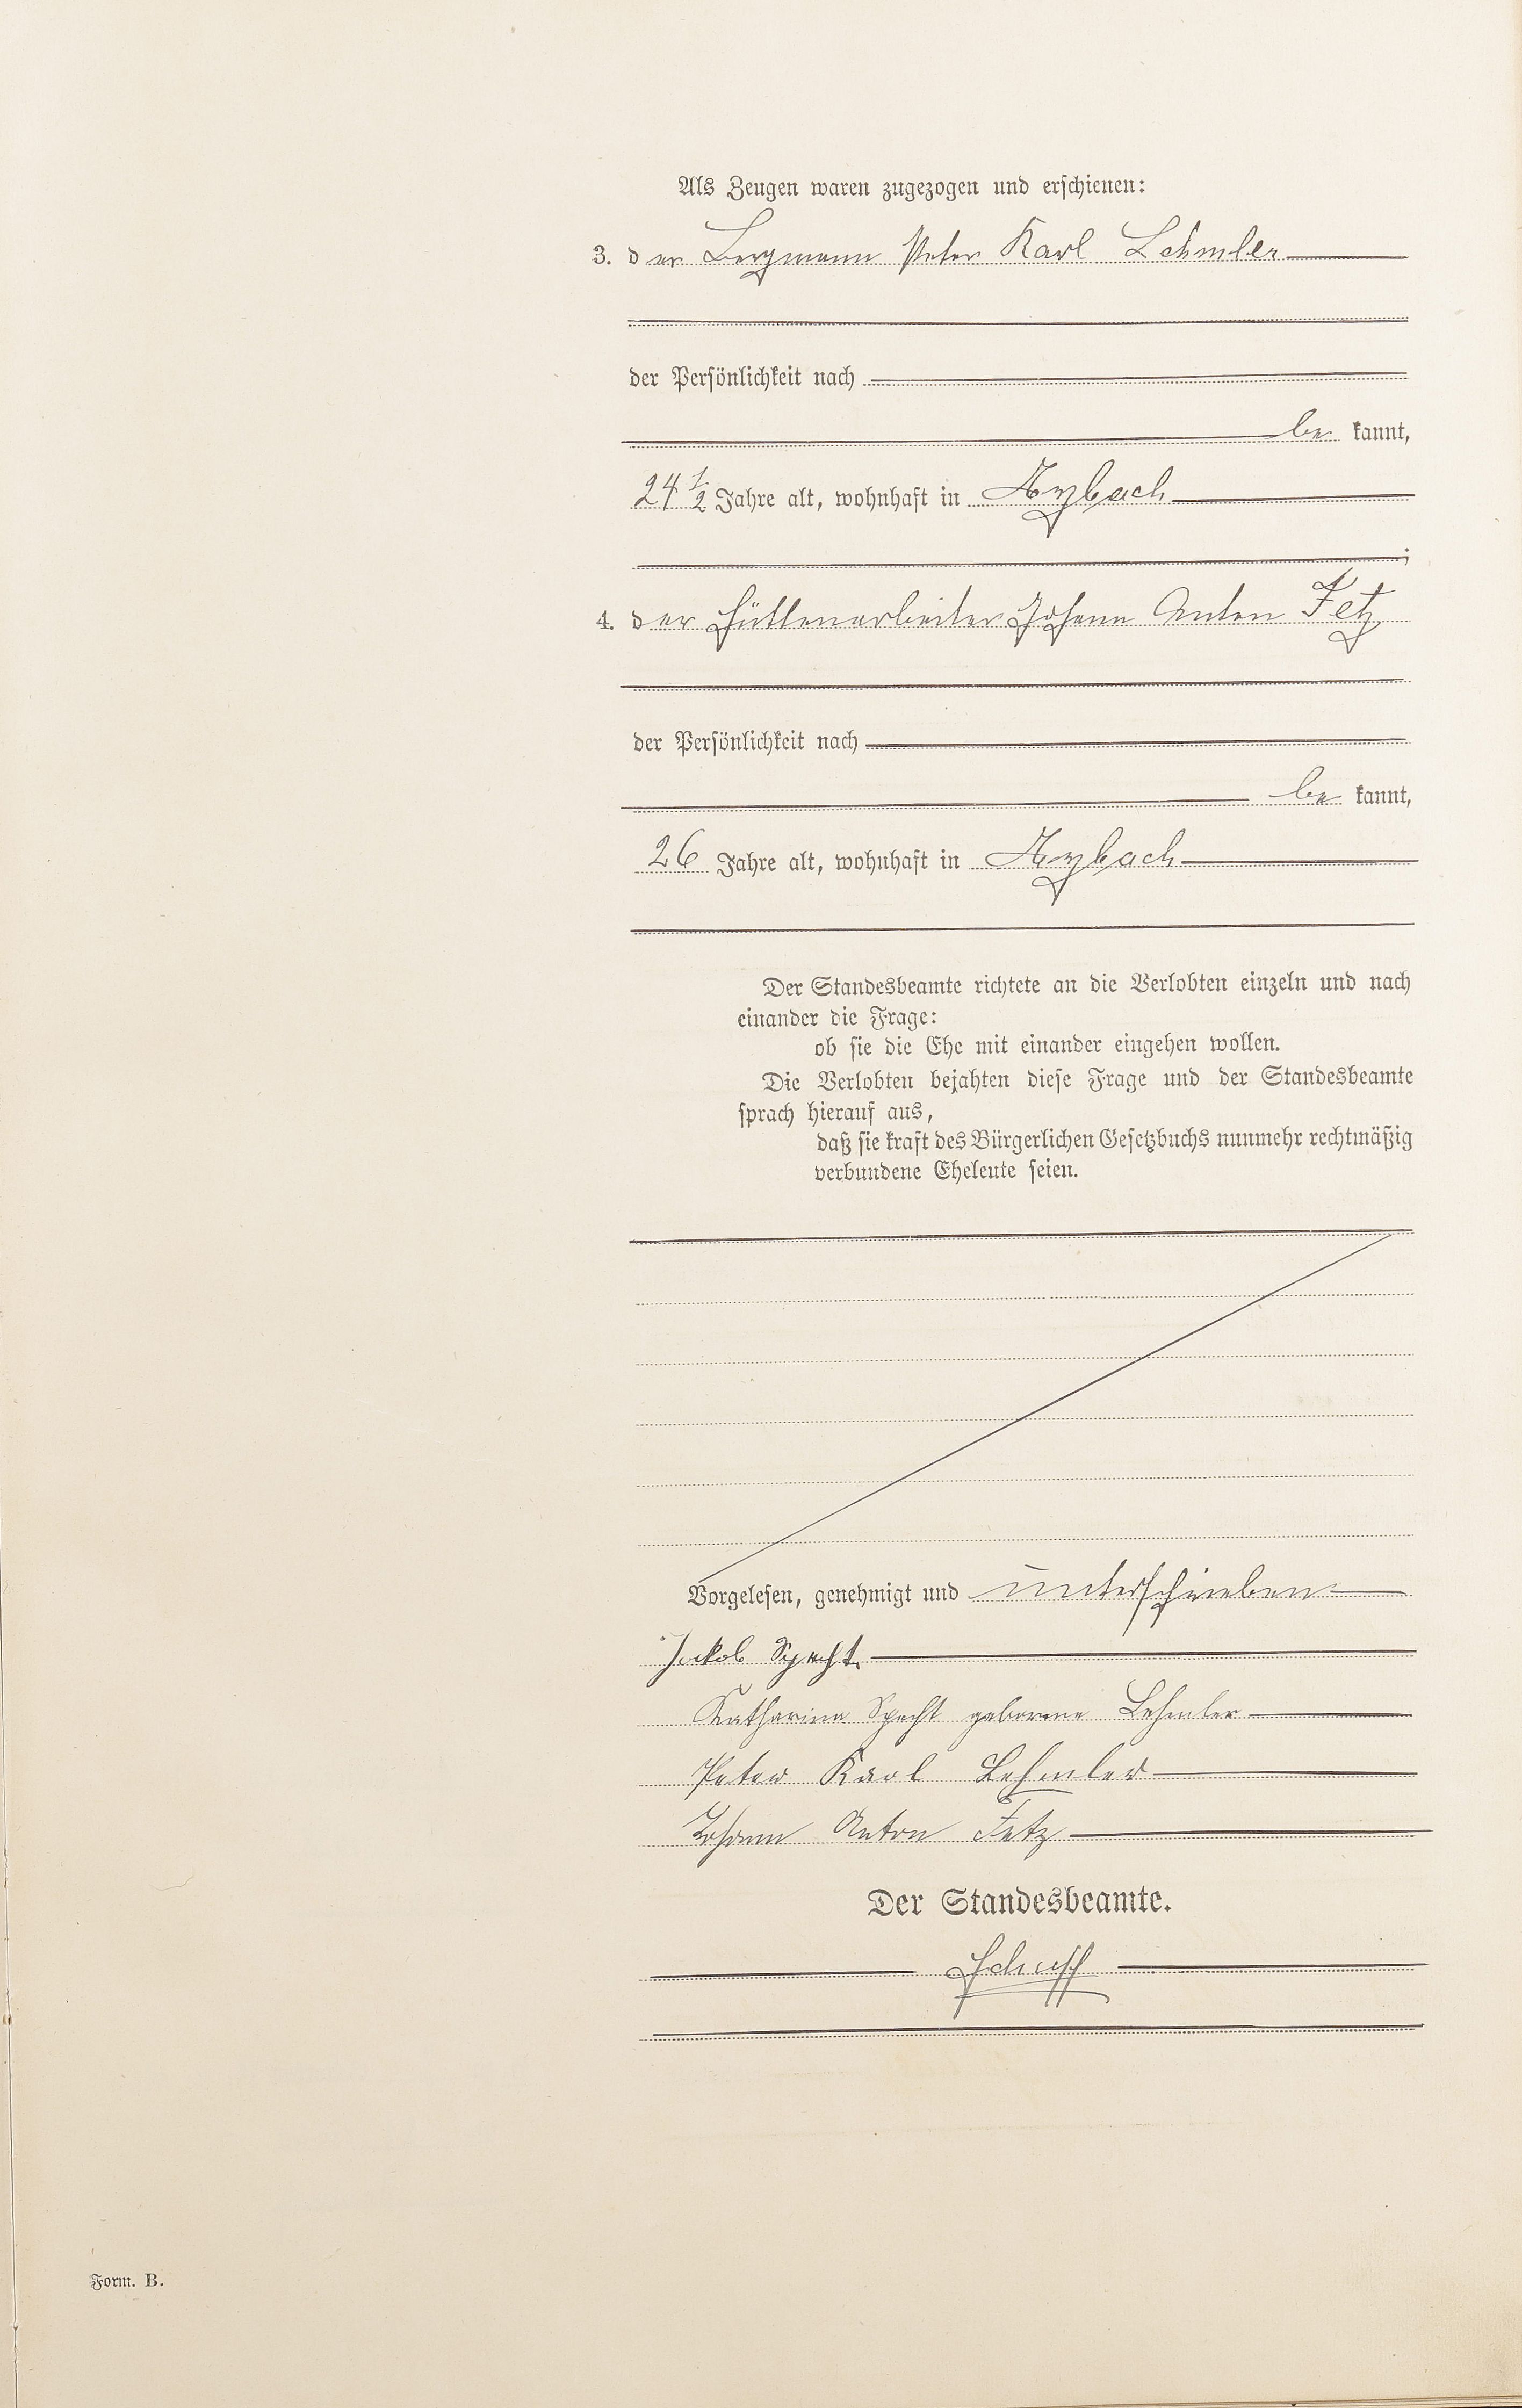 Als Zeugen waren zugezogen und erschienen:
3. der Bergmann Peter Karl Lehmler
der Persönlichkeit nach
be kannt,
24 1/2 Jahre alt, wohnhaft in Arzbach
;
4. der Hüttenarbeiter Johann Anton Fetz
der Persönlichkeit nach
be kannt,
26 Jahre alt, wohnhaft in Arzbach
Der Standesbeamte richtete an die Verlobten einzeln und nach
einander die Frage:
ob sie die Ehe mit einander eingehen wollen.
Die Verlobten bejahten diese Frage und der Standesbeamte
sprach hierauf aus,
daß sie kraft des Bürgerlichen Gesetzbuchs nunmehr rechtmäßig
verbundene Eheleute seien.
Vorgelesen, genehmigt und unterschrieben
Jakob Specht.
Katharina Specht geborene Lehmler
Peter Karl Lehmler
Johann Anton Fetz
Der Standesbeamte.
Form. B.